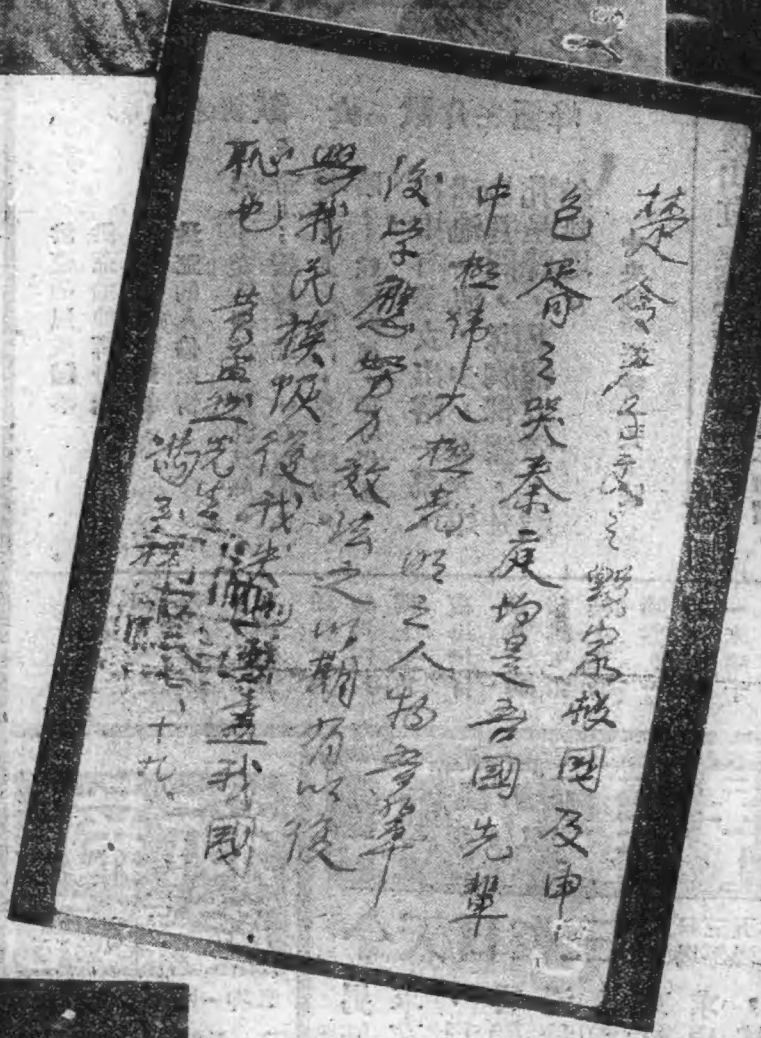 楚令尹子文之毀家報國及申
包胥之哭秦庭均是吾國先輩
中極偉大極光明之人物吾輩
後學應努力效法之以期有以復
興我民族恢復我失地盡我國
恥也
先生
馮玉祥 十九、